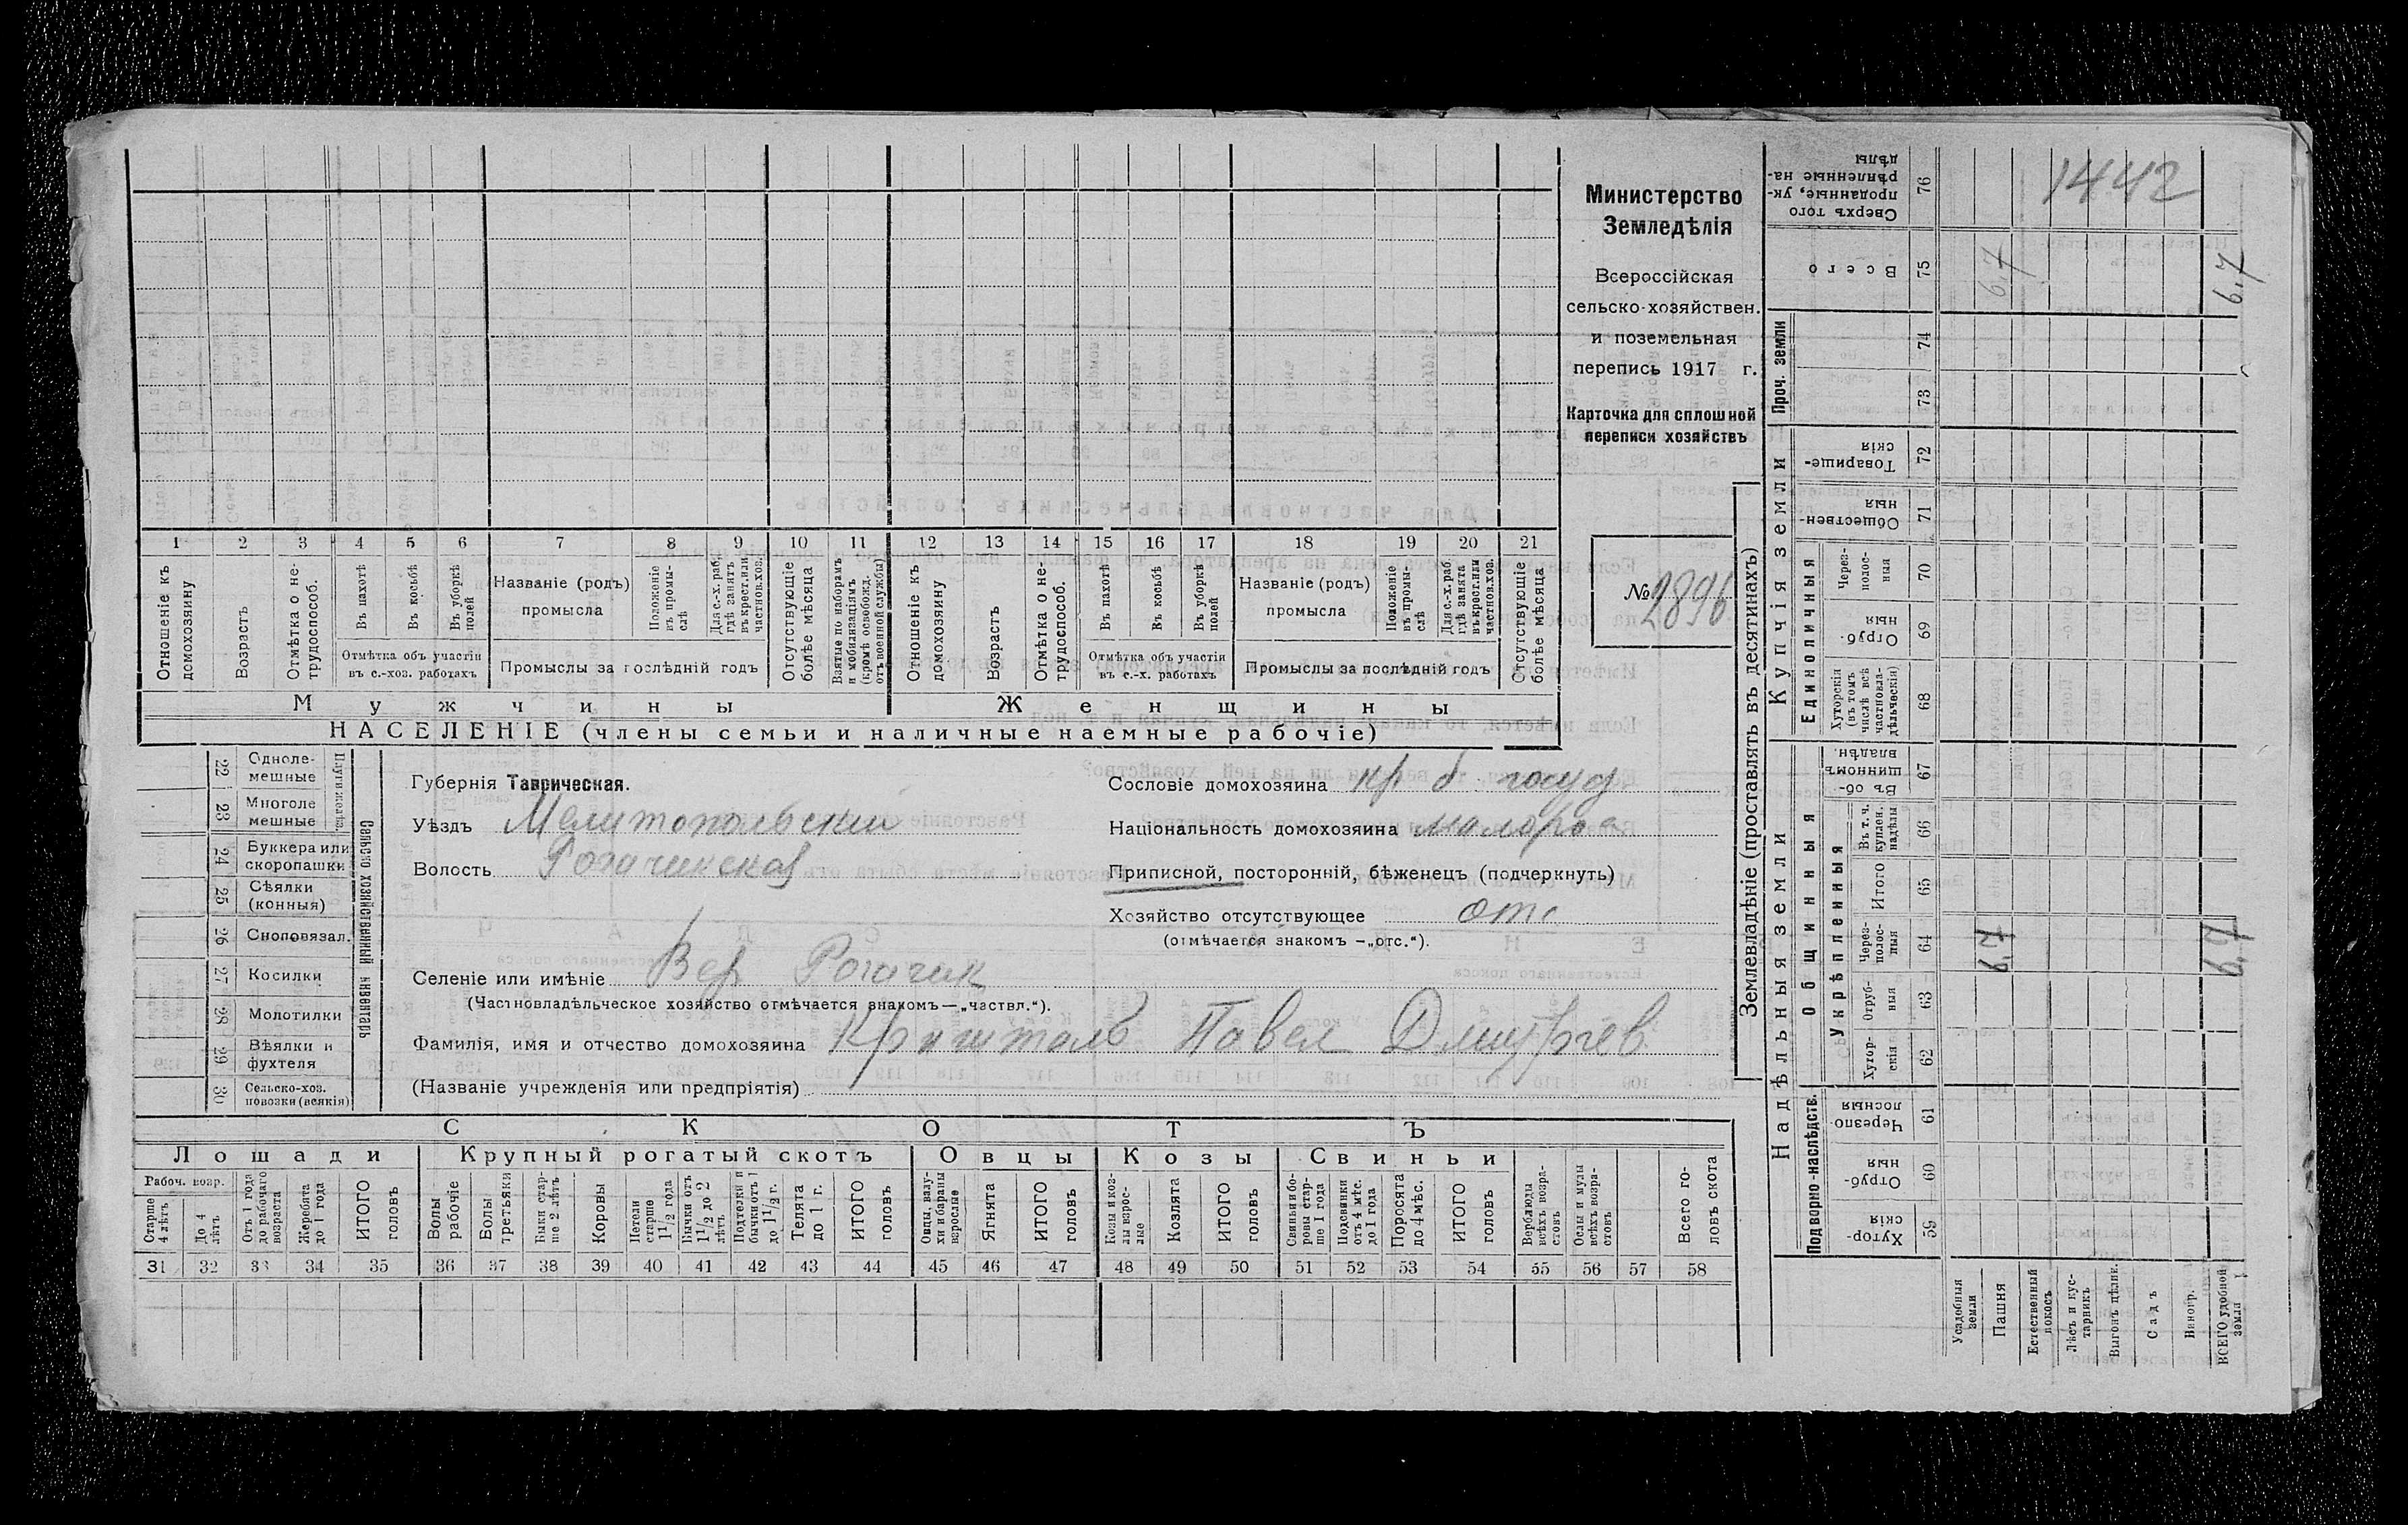 1442
Министерство
Земледѣлія
Всероссійская
сельско-хозяйствен.
и поземельная
перепись 1917 г.
Карточка для сплошной
переписи хозяйствъ
№ 2896
1 2 3 4 5 6 7 8 9 10 11 12 13 14 15 16 17 18 19 20 21
Отношеніе къ домохозяину
Возрастъ
Отмѣтка о нетрудоспособ.
Въ пахотѣ
Въ косьбѣ
Въ уборкѣ полей
Отмѣтка объ участіи
въ с.-хоз. работахъ
Названіе (родъ)
промысла
Положеніе въ промы-слѣ
Для с.-х. раб. гдѣ занятъ въ крест. или частнов. хоз.
Промыслы за послѣдній годъ
Отсутствующіе болѣе мѣсяца
Взятые по наборамъ и мобилизаціямъ (кромѣ освобожд. отъ военной службы)
Отношеніе къ домохозяину
Возрастъ
Отмѣтка о не-трудоспособ.
Въ пахотѣ
Въ косьбѣ
Въ уборкѣ полей
Отмѣтка объ участіи
въ с.-х. работахъ
Названіе (родъ)
промысла
Положеніе въ промы-слѣ
Для с.-х. раб. гдѣ занята въ крест. или частнов. хоз.
Промыслы за послѣдній годъ
Отсутствующіе болѣе мѣсяца
Мужчины Женщины
НАСЕЛЕНІЕ (члены семьи и наличные наемные рабочіе)
22 Одноле-мешные
23 Многоле мешные
24 Буккера или скоропашки
25 Сѣялки (конныя)
26 Сноповязал.
27 Косилки
28 Молотилки
29 Вѣялки и фухтеля
30 Сельско-хоз. повозки (всякія)
Сельско хозяйственный инвентарь
Губернія Таврическая.
Уѣздъ Мелитопольский
Волость Рогачикская
Селеніе или имѣніе Вер Рогачик
(Частновладѣльческое хозяйство отмѣчается знакомъ—„частвл.“).
Фамилія, имя и отчество домохозяина Кришталь Павел Дмитріев
(Названіе учрежденія или предпріятія)
Сословіе домохозяина кр б госуд
Національность домохозяина малорос
Приписной, посторонній, бѣженецъ (подчеркнуть)
Хозяйство отсутствующее отс
(отмѣчается знакомъ –„отс.“).
СКОТЪ
Лошади Крупный рогатый скотъ Овцы Козы Свиньи
Рабоч. возр.
Старше 4 лѣтъ
До 4 лѣтъ
Отъ 1 года до рабочаго возраста
Жеребята до 1 года
ИТОГО головъ
Волы рабочіе
Волы третьяки
Быки стар-ше 2 лѣтъ
Коровы
Нетели старше 1 1/2 года
Бычки отъ 1 1/2 до 2 лѣтъ
Подтелки и бычки отъ 1 до 1 1/2 г.
Телята до 1 г.
ИТОГО головъ
Овцы, валу-хи и бараны взрослые
Ягнята
ИТОГО головъ
Козы и коз-лы взрос-лые
Козлята
ИТОГО головъ
Свиньи и бо-ровы стар-ше 1 года
Подсвинки отъ 4 мѣс. до 1 года
Поросята до 4 мѣс.
ИТОГО головъ
Верблюды всѣхъ возра-стовъ
Ослы и мулы всѣхъ возра-стовъ
Всего го-ловъ скота
31 32 33 34 35 36 37 38 39 40 41 42 43 44 45 46 47 48 49 50 51 52 53 54 55 56 57 58
Землевладѣніе (проставлять въ десятинахъ)
Надѣльныя земли
Купчія земли
Проч. земли
Подворно-наслѣдств.
Общинныя
Укрѣпленныя
Единоличныя
Хутор-скія 59
Отруб-ныя 60
Черезпо-лосныя 61
Хутор-скія 62
Отруб-ныя 63
Через-полос-ныя 64 6,7 6,7
Итого 65
Въ т. ч. куплен. надѣлы 66
Въ об-щинномъ владѣн. 67
Хуторскія (въ томъ числѣ всѣ частновла-дѣльческія) 68
Отруб-ныя 69
Через-полос-ныя 70
Обществен-ныя 71
Товарище-скія 72
73
74
Всего 75 67 6,7
Сверхъ того проданные, ук-рѣпленные на-дѣлы 76
Усадебныя земли
Пашня
Естественный покосъ
Лѣсъ и кус-тарникъ
Выгонъ цѣлик.
Садъ
Виногр.
ВСЕГО удобной земли